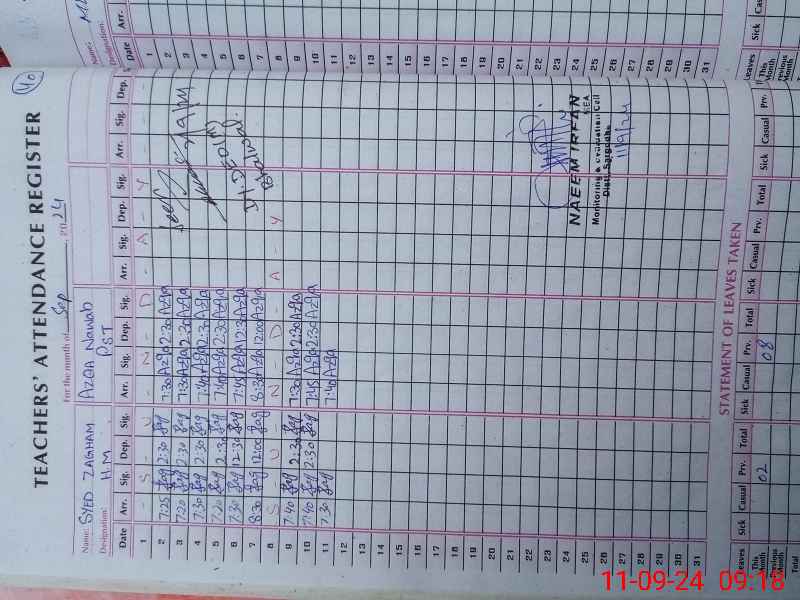 TEACHERS' ATTENDANCE REGISTER
40
For the month of Sep, 2024
Name: SYED ZAGHAM
AZQA Nawab
Designation: H.M
PST
Date Arr. Sig. Dep. Sig. Arr. Sig. Dep. Sig. Arr. Sig. Dep. Sig. Arr. Sig. Dep.
1 - S - U - N - D - A - Y
2 7:25 2:30 7:30 Azqa 2:30 Azqa
3 7:20 2:30 7:30 Azqa 2:30 Azqa
4 7:30 2:30 7:40 Azqa 2:30 Azqa
5 7:20 2:30 7:40 Azqa 2:30 Azqa
6 7:30 12:30 7:45 Azqa 12:30 Azqa
7 8:30 12:00 8:30 Azqa 12:00 Azqa
8 S - U - N - D - A - Y
9 7:40 2:30 7:30 Azqa 2:30 Azqa
10 7:40 2:30 7:45 Azqa 2:30 Azqa
11 7:30 7:40 Azqa
12
13
14
15
16
17
18
19
20
21
22
23
24
25
26
27
28
29
30
31
Bhalwal
NAEEM IRFAN
MEA
Monitoring & Evaluation Cell
Distt. Sargodha
11/9/24
STATEMENT OF LEAVES TAKEN
Leaves Sick Casual Prv. Total Sick Casual Prv. Total Sick Casual Prv. Total Sick Casual Prv.
This Month 02 08
Previous Month
Total
Name:
Designation:
Date Arr.
1
2
3
4
5
6
7
8
9
10
11
12
13
14
15
16
17
18
19
20
21
22
23
24
25
26
27
28
29
30
31
Leaves Sick
This Month
Previous Month
11-09-24 09:18